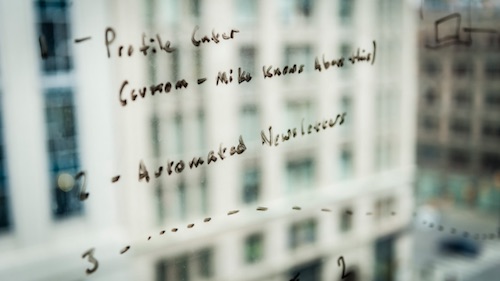 1 - Profile Center
(Govroom - Mike Knows About this)
2 - Automated Newsletters
3 -
2